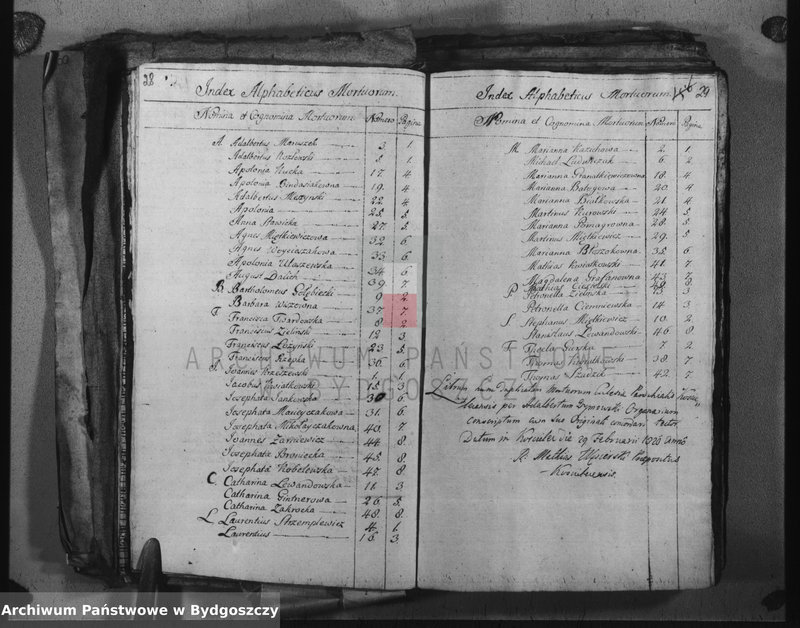 28
Index Alphabeticus Mortuorum.
Nomina et Cognomina Mortuorum Numero Pagina
A. Adalbertus Maruszek 3. 1.
Adalbertus Kozłowski 5. 1.
Apolonia Kucka 17. 4.
Apolonia 19. 4.
Adalbertus Meszynski 22. 4.
Apolonia 25. 5.
Anna Stawicka 27. 5.
Agnes Mięthiewiczowa 32. 6.
Agnes Woyciszakowa 33. 6.
Apolonia Ułaszewska 34. 6.
August Dalich 39. 7.
B. Bartholomeus Gołębiecki 9. 2.
Barbara 37. 7.
F. Francisca Twardowska 8. 2.
Franciscus Zielinski 12. 3.
Franciscus Łożynski 23. 5.
Franciscus Rzapka 36. 6.
J. Joannes Krzeszewski 1. 1.
Jacobus Kwiatkowski 15. 3.
Josephata Jankowska 30. 6.
Josephata Macieyczakowa 31. 6.
Josephata Mikołayczakowna 40. 7.
Joannes Żarniewicz 44. 8.
Josephata Broniecka 45. 8.
Josephata Kobelewska 47. 8.
C. Catharina Lewandowska 11. 3.
Catharina Gintnerowa 26. 5.
Catharina Zakrocka 48. 8.
L. Laurentius Strzemplewicz 4. 1.
Laurentius 16. 3.
29
Index Alphabeticus Mortuorum.
Nomina et Cognomina Mortuorum Numero Pagina
M. Marianna Kazuchowa 2. 1.
Michael Ludwiczak 6. 2.
Marianna Granatkiewiczowna 18. 4.
Marianna Batygowa 20. 4.
Marianna Białkowska 21. 4.
Martinus Kurowski 24. 5.
Marianna Pomagrowna 28. 5.
Martinus Miętkiewicz 29. 5.
Marianna Błaszakowna 35. 6.
Mathias Kwiatkowski 41. 7.
Magdalena Grafanowna 43. 7.
Mathias Czapelski 8.
P. Petronella Zielinska 3.
Petronella Ciemniewska 14. 3.
S. Stephanus Miętkiewicz 10. 2.
Stanislaus Lewandowski 46. 8.
T. Thecla Gurska 7. 2.
Thomas Kwiatkowski 38. 7.
Thomas Szudzik 42. 7.
Librum hunc duplicatum Mortuorum Ecclesiae Parochialis
per Adalbertum Gymowski Organarium
conscriptum cum suo Originali concordari testor.
Datum in die 29 Februarii 1828 anno
X. Mathias Praepositus
ARCHIWUM PAŃSTWOWE
W BYDGOSZCZY
Archiwum Państwowe w Bydgoszczy